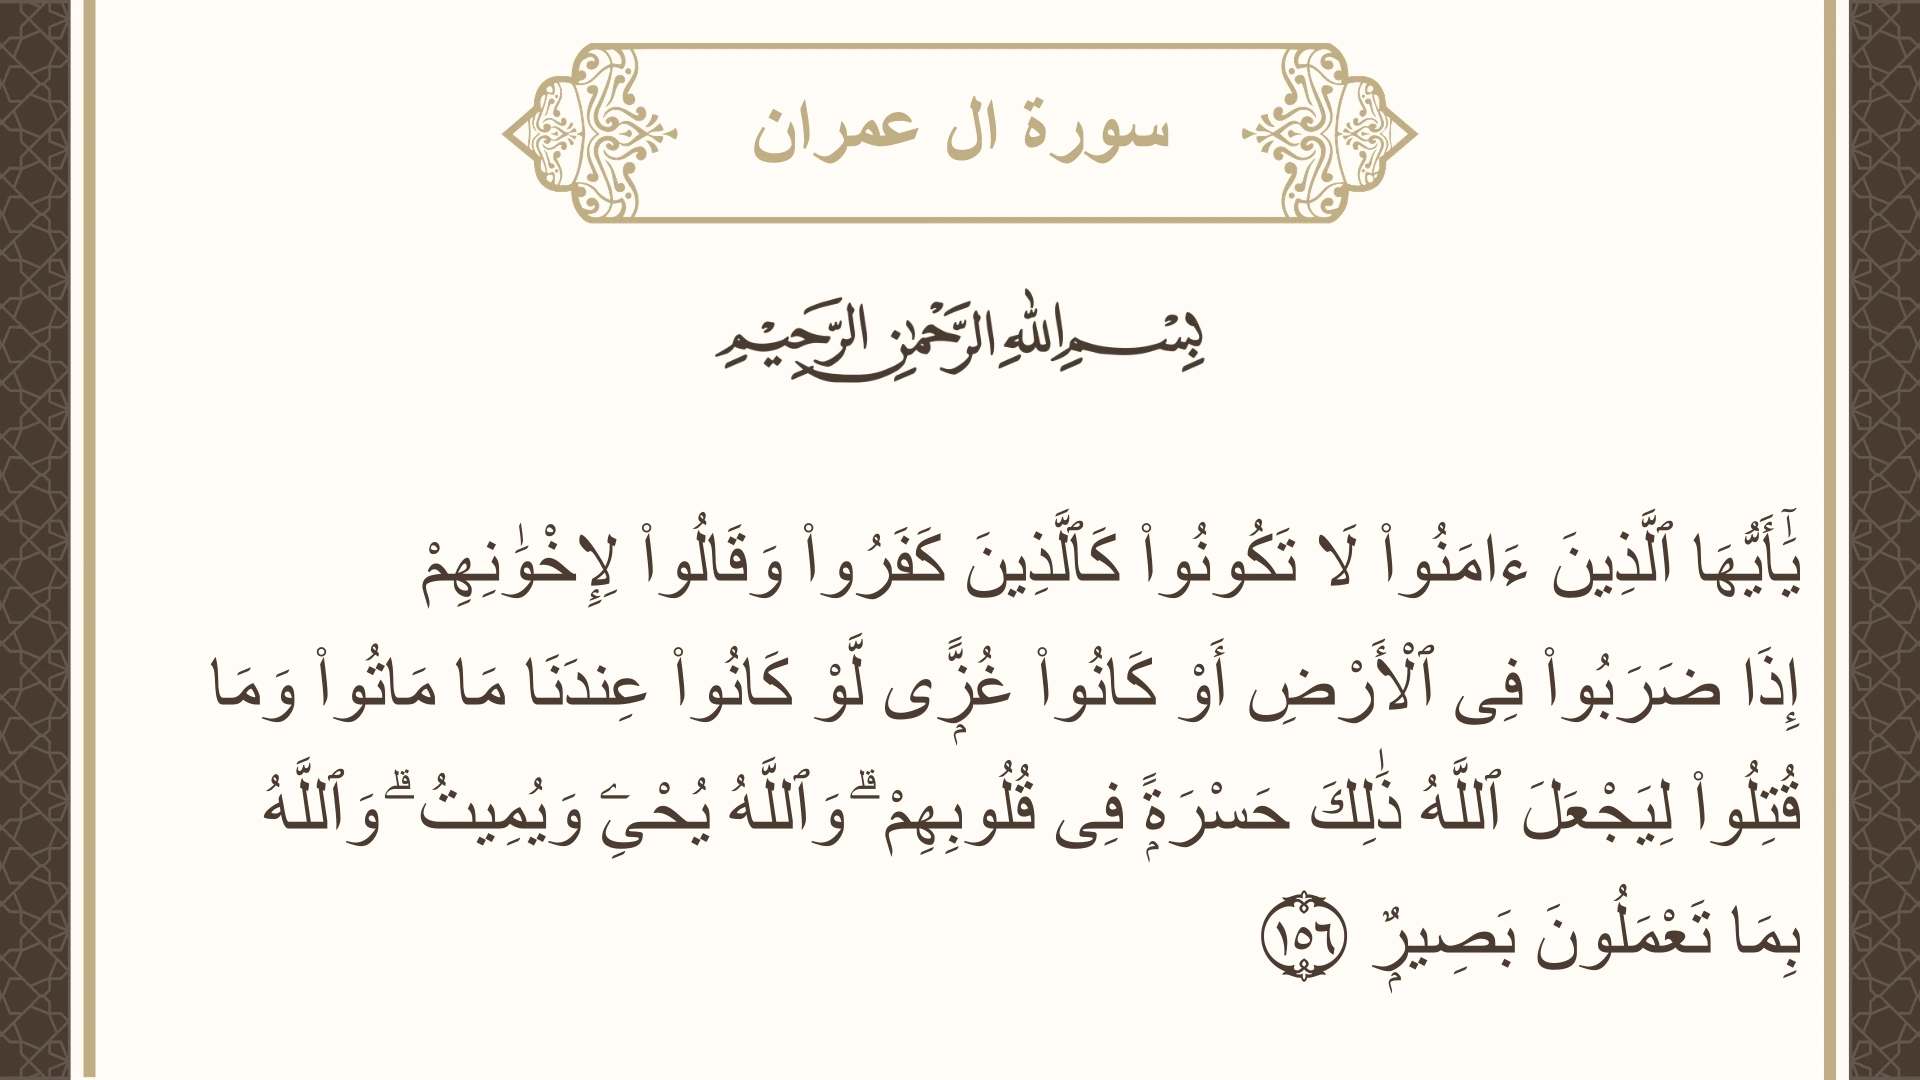 سورة ال عمران
بِسْمِ اللهِ الرَّحْمٰنِ الرَّحِيْمِ
يَٰٓأَيُّهَا ٱلَّذِينَ ءَامَنُوا۟ لَا تَكُونُوا۟ كَٱلَّذِينَ كَفَرُوا۟ وَقَالُوا۟ لِإِخْوَٰنِهِمْ
إِذَا ضَرَبُوا۟ فِى ٱلْأَرْضِ أَوْ كَانُوا۟ غُزًّۭى لَّوْ كَانُوا۟ عِندَنَا مَا مَاتُوا۟ وَمَا
قُتِلُوا۟ لِيَجْعَلَ ٱللَّهُ ذَٰلِكَ حَسْرَةًۭ فِى قُلُوبِهِمْ ۗ وَٱللَّهُ يُحْىِۦ وَيُمِيتُ ۗ وَٱللَّهُ
بِمَا تَعْمَلُونَ بَصِيرٌۭ ١٥٦